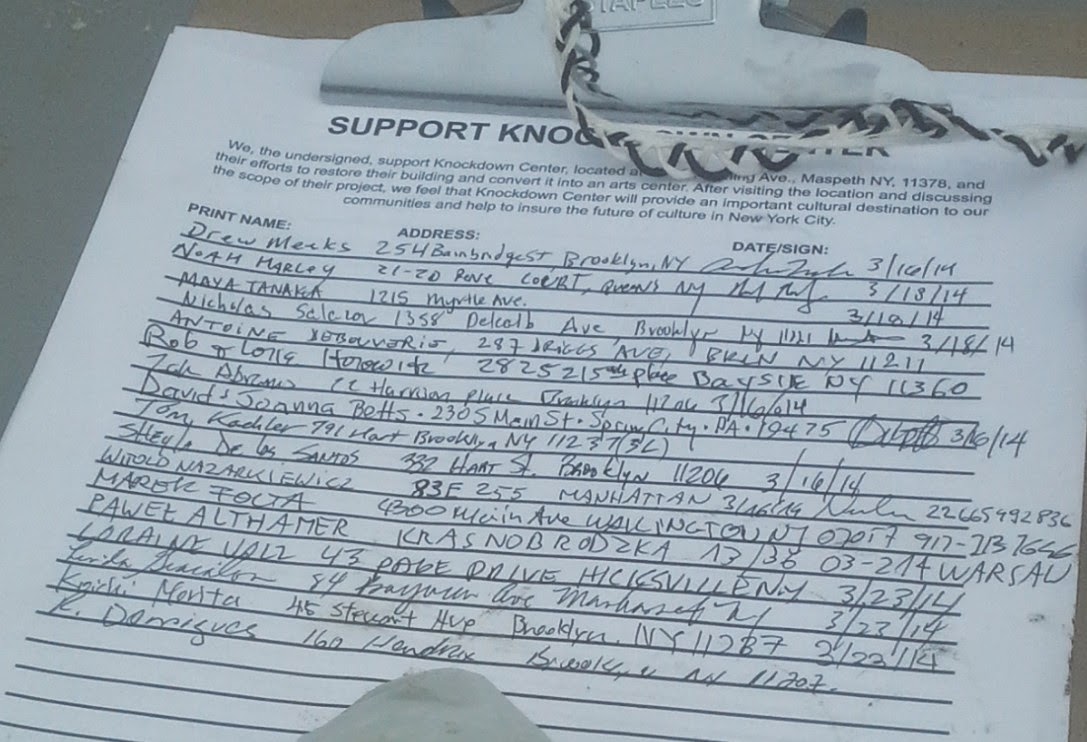 STAPLES
SUPPORT KNOCKDOWN CENTER
We, the undersigned, support Knockdown Center, located at Ave., Maspeth NY, 11378, and
their efforts to restore their building and convert it into an arts center. After visiting the location and discussing
the scope of their project, we feel that Knockdown Center will provide an important cultural destination to our
communities and help to insure the future of culture in New York City.
PRINT NAME: ADDRESS: DATE/SIGN:
Drew Meeks 254 Bainbridge St, Brooklyn, NY 3/16/14
NOAH HARLEY 21-20 COURT, QUEENS NY 3/18/14
MAYA TANAKA 1215 Myrtle Ave. 3/18/14
Nicholas Salazar 1358 Dekalb Ave Brooklyn NY 11221 3/18/14
ANTOINE 287 DRIGGS AVE, BKLN NY 11211
Rob & Horowitz 28 25 215th place BAYSIDE NY 11360
Zak Abrams Harrison Place Brooklyn 11206 3/16/14
David & Joanna Betts. 230 S Main St. Spring City. PA. 19475 3/16/14
Tom Kachler 791 Hart Brooklyn NY 11237 (3L)
Sheyla De los SANTOS 332 HART St. BROOKLYN 11206 3/16/14
WITOLD NAZARKIEWICZ 83E 255 MANHATTAN 3/16/14 22665492836
MAREK FOLTA 4300 Main Ave WALLINGTON NJ 07057 917-213
PAWEŁ ALTHAMER KRASNOBRODZKA 13/36 03-214 WARSAU
LORAINE 43 PAGE DRIVE HICKSVILLE NY 3/23/14
84 Ave Manhasset NY 3/23/14
Koichi Morita 45 Stewart Ave Brooklyn, NY 11237 3/23/14
R. Domigues 160 Hendrix Brooklyn NY 11207.